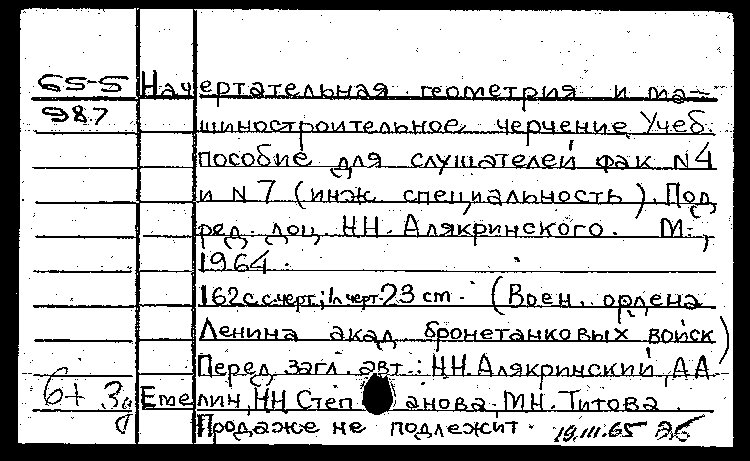 65-5 Начертательная геометрия и ма-
987 шиностроительное черчение Учеб.
пособие для слушателей фак N4
и N7 (инж. специальность). Под
ред. доц. Н.Н. Алякринского. М.,
1964.
162 с. с черт.; 23 cm. (Воен. ордена
Ленина акад. бронетанковых войск)
Перед загл. авт.: Н.Н. Алякринский, А.А.
6+ 3д Емелин, Н.Н Степанова. М.Н. Титова.
Продаже не подлежит. 19.III.65